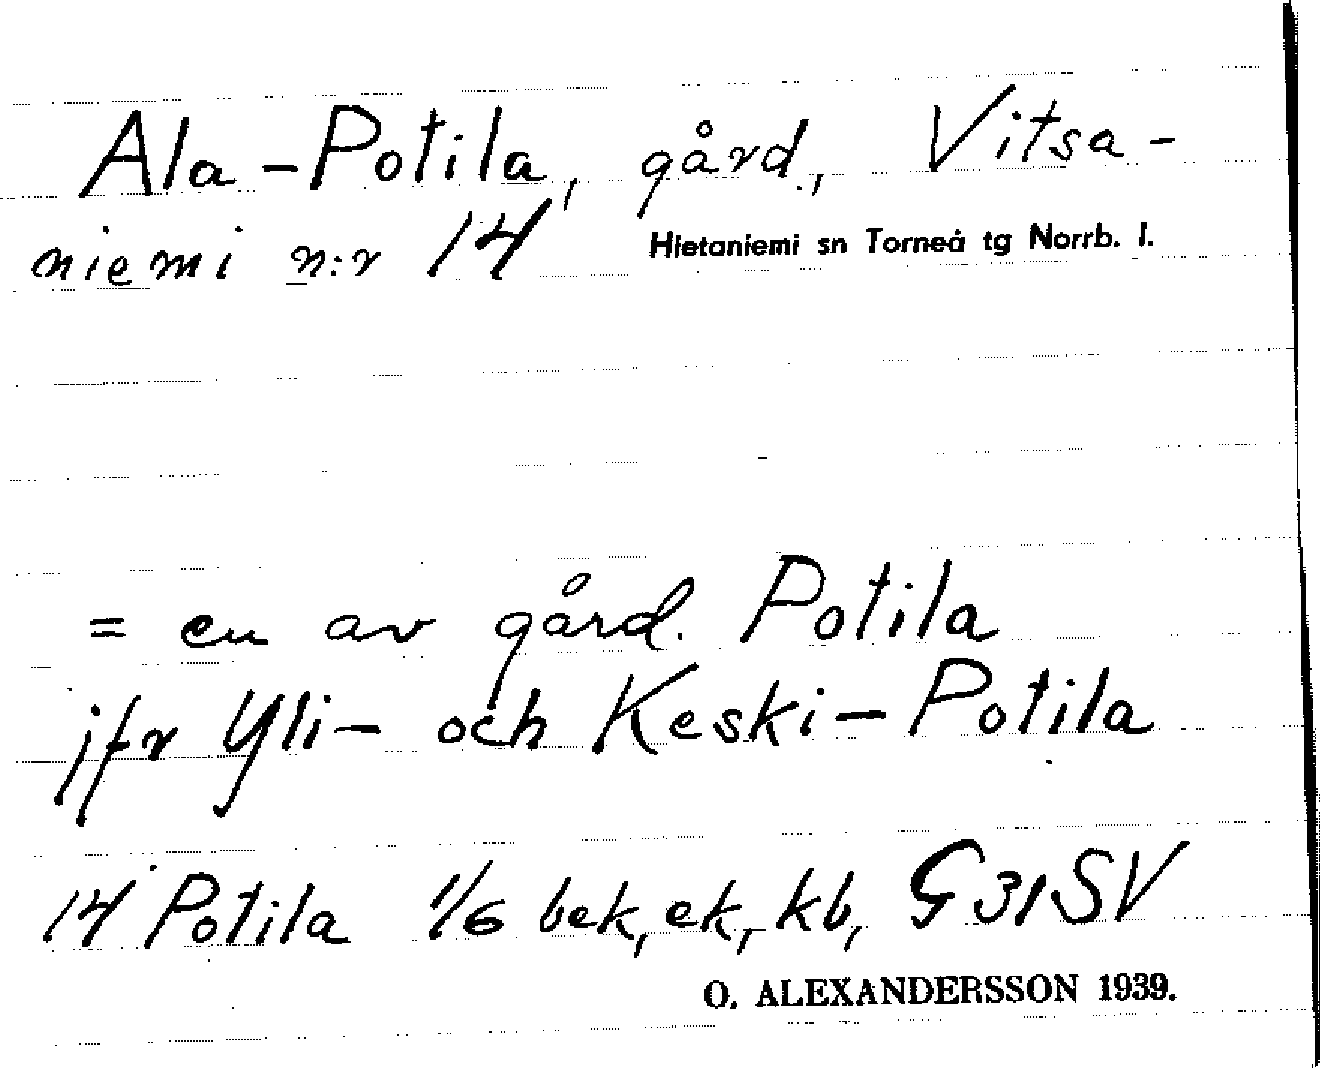 Ala-Potila, gård, Vitsa-
niemi n:r 14 Hietaniemi sn Torneå tg Norrb. l.
= en av gård. Potila
jfr Yli- och Keski-Potila
14 Potila 1/6 bek, ek, kb, G31SV
O. ALEXANDERSSON 1939.